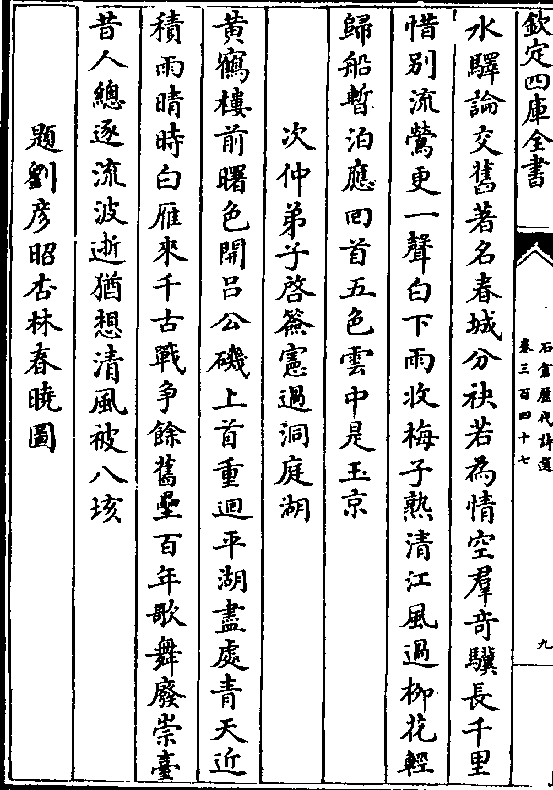 欽定四庫全書
石倉歷代詩選
卷三百四十七
九
水驛論交舊著名春城分袂若為情空羣竒驥長千里
惜别流鶯更一聲白下雨收梅子熟清江風過柳花輕
歸船暫泊應回首五色雲中是玉京
次仲弟子啓簽憲過洞庭湖
黄鶴樓前曙色開吕公磯上首重迴平湖盡處青天近
積雨晴時白雁來千古戰争餘舊壘百年歌舞廢崇臺
昔人總逐流波逝猶想清風被八垓
題劉彦昭杏林春曉圖